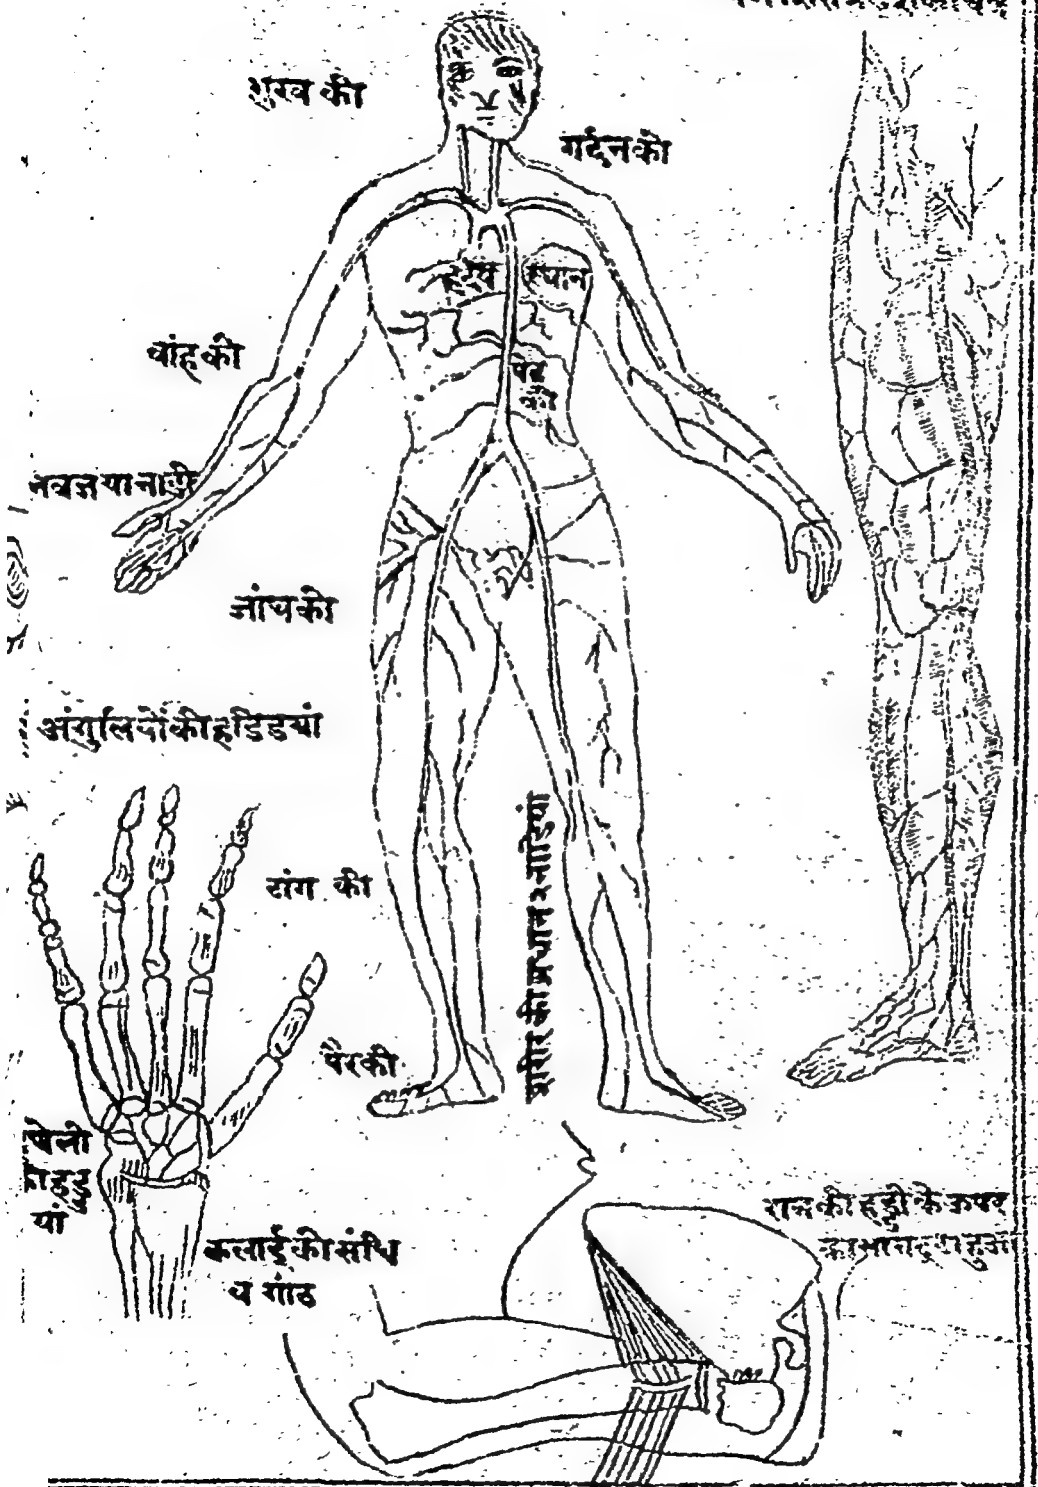 मुख की
गर्दन की
हृदय स्थान
बांह की
पेट
की
नब्ज या नाड़ी
जांघ की
अंगुलियों की हड्डियां
टांग की
शरीर की प्रधान २ नाड़ियां
पैर की
यां
कलाई की संधि
व गांठ
रान की हड्डी के ऊपर
का भाग टूटा हुआ